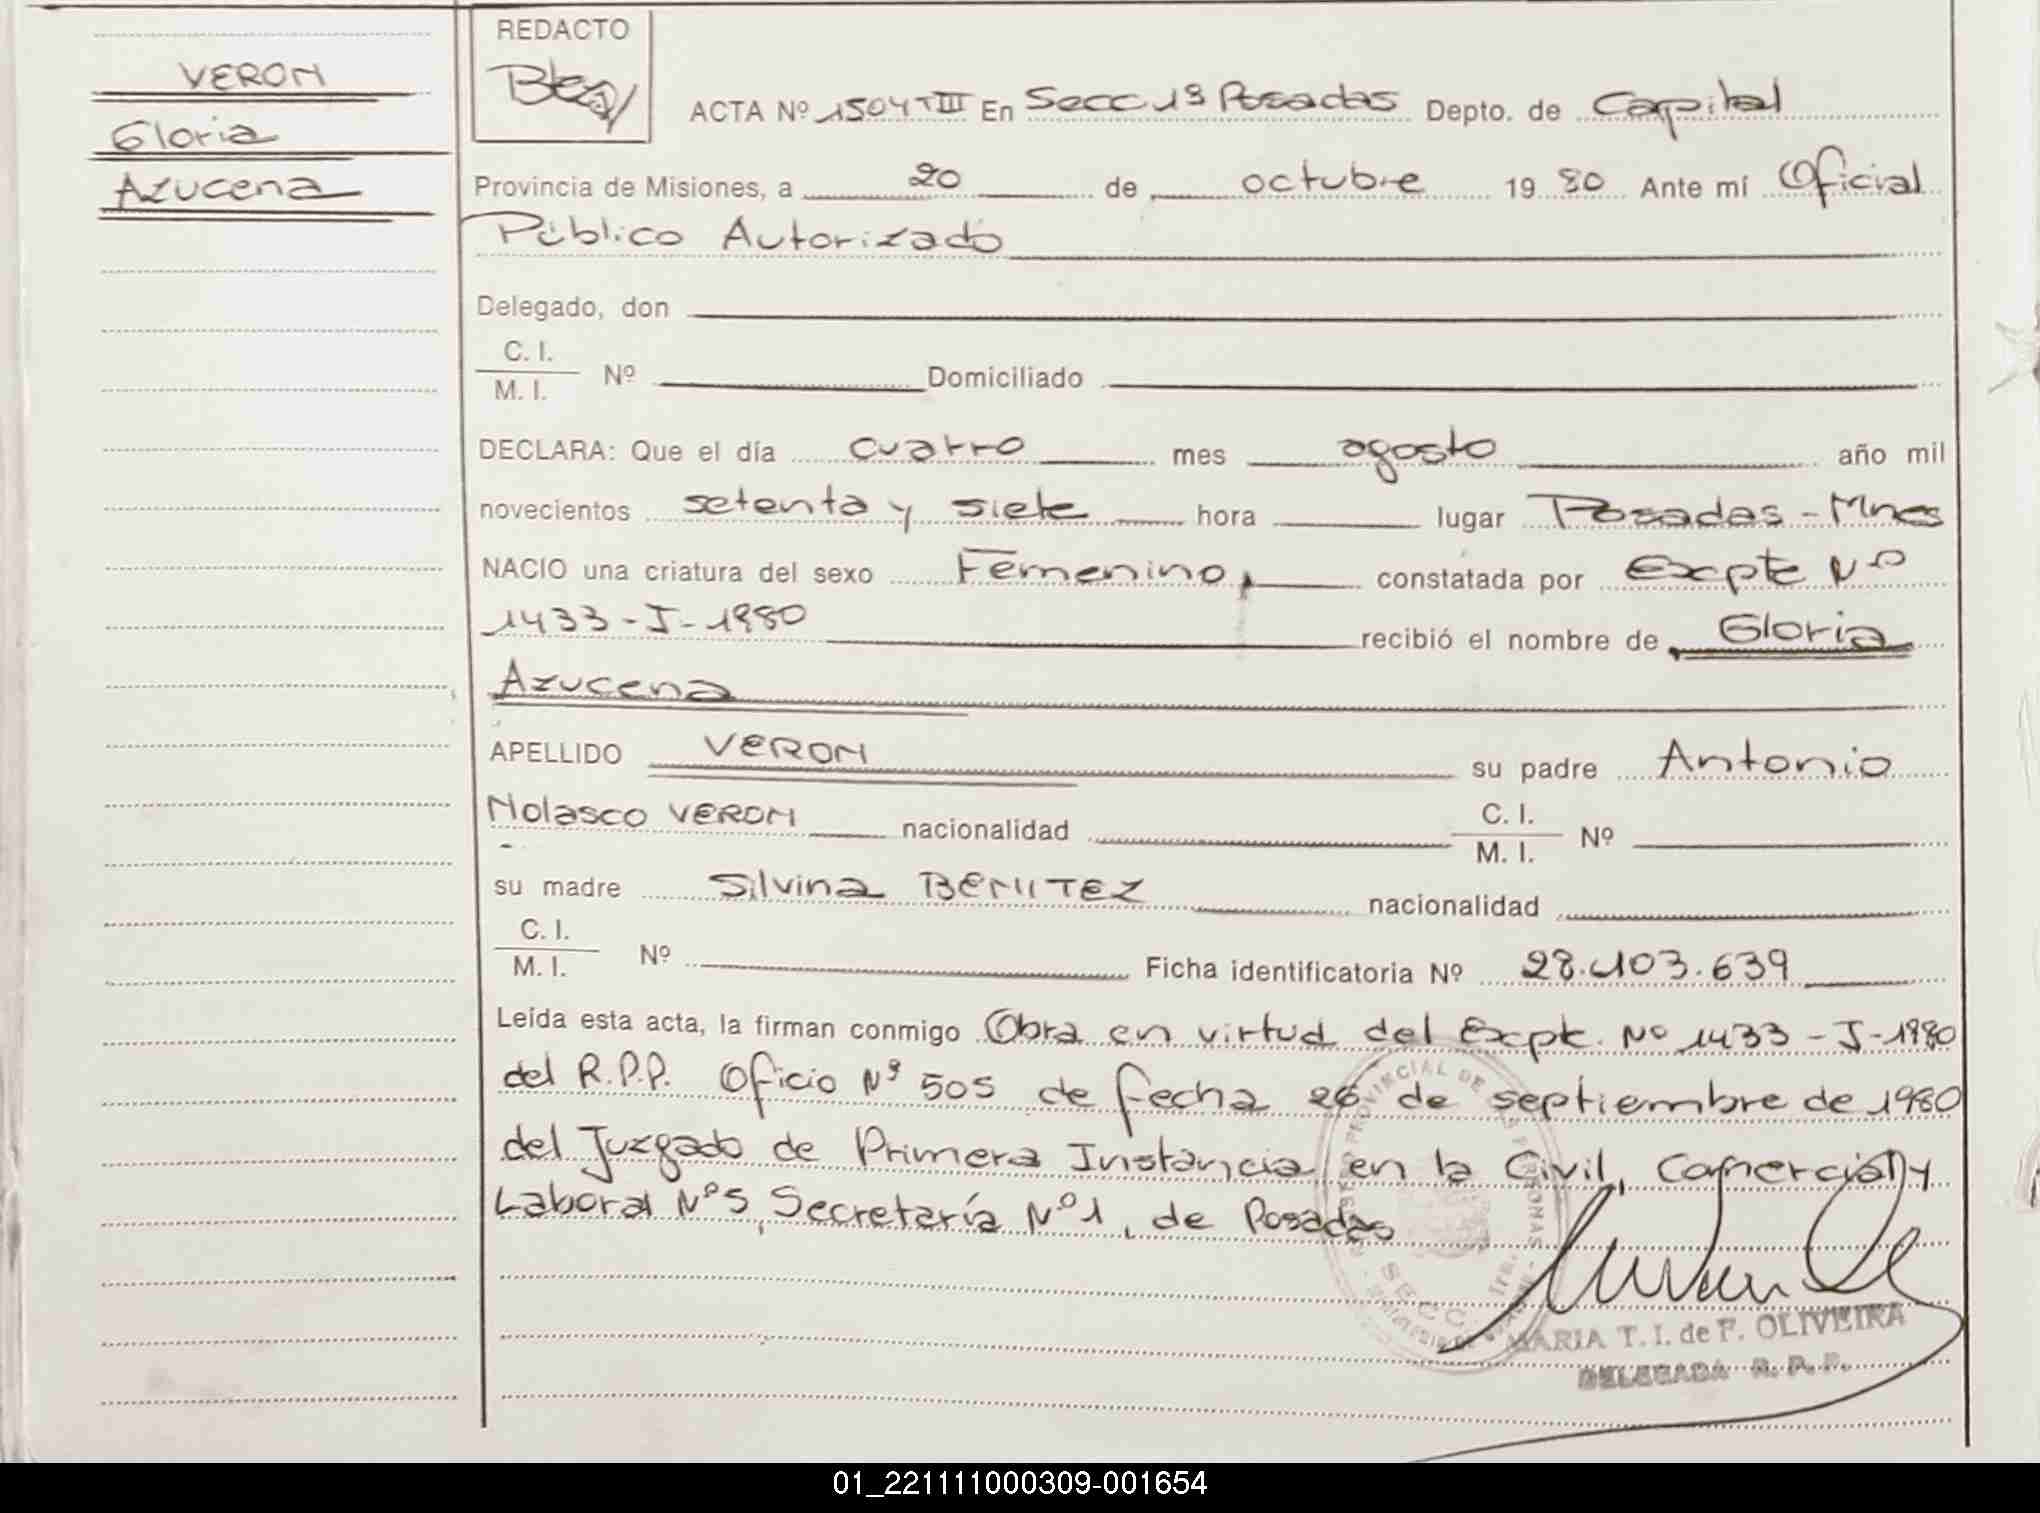 VERON
Gloria
Azucena
REDACTO
ACTA Nº 1504 TIII En Secc 1ª Posadas Depto. de Capital
Provincia de Misiones, a 20 de octubre 19 80 Ante mí Oficial
Público Autorizado
Delegado, don
C. I.
M. I. Nº Domiciliado
DECLARA: Que el día cuatro mes agosto año mil
novecientos setenta y siete hora lugar Posadas - Mnes
NACIO una criatura del sexo Femenino, constatada por Expte Nº
1433-I-1980 recibió el nombre de Gloria
Azucena
APELLIDO VERON su padre Antonio
Nolasco VERON nacionalidad C. I.
M. I. Nº
su madre Silvina BENITEZ nacionalidad
C. I.
M. I. Nº Ficha identificatoria Nº 28.103.639
Leída esta acta, la firman conmigo Obra en virtud del Expte. Nº 1433-I-1980
del R.P.P. Oficio Nº 505 de fecha 26 de septiembre de 1980
del Juzgado de Primera Instancia en lo Civil, Comercial y
Laboral Nº 5, Secretaría Nº 1, de Posadas
MARIA T. I. de F. OLIVEIRA
DELEGADA R. P. P.
01_221111000309-001654